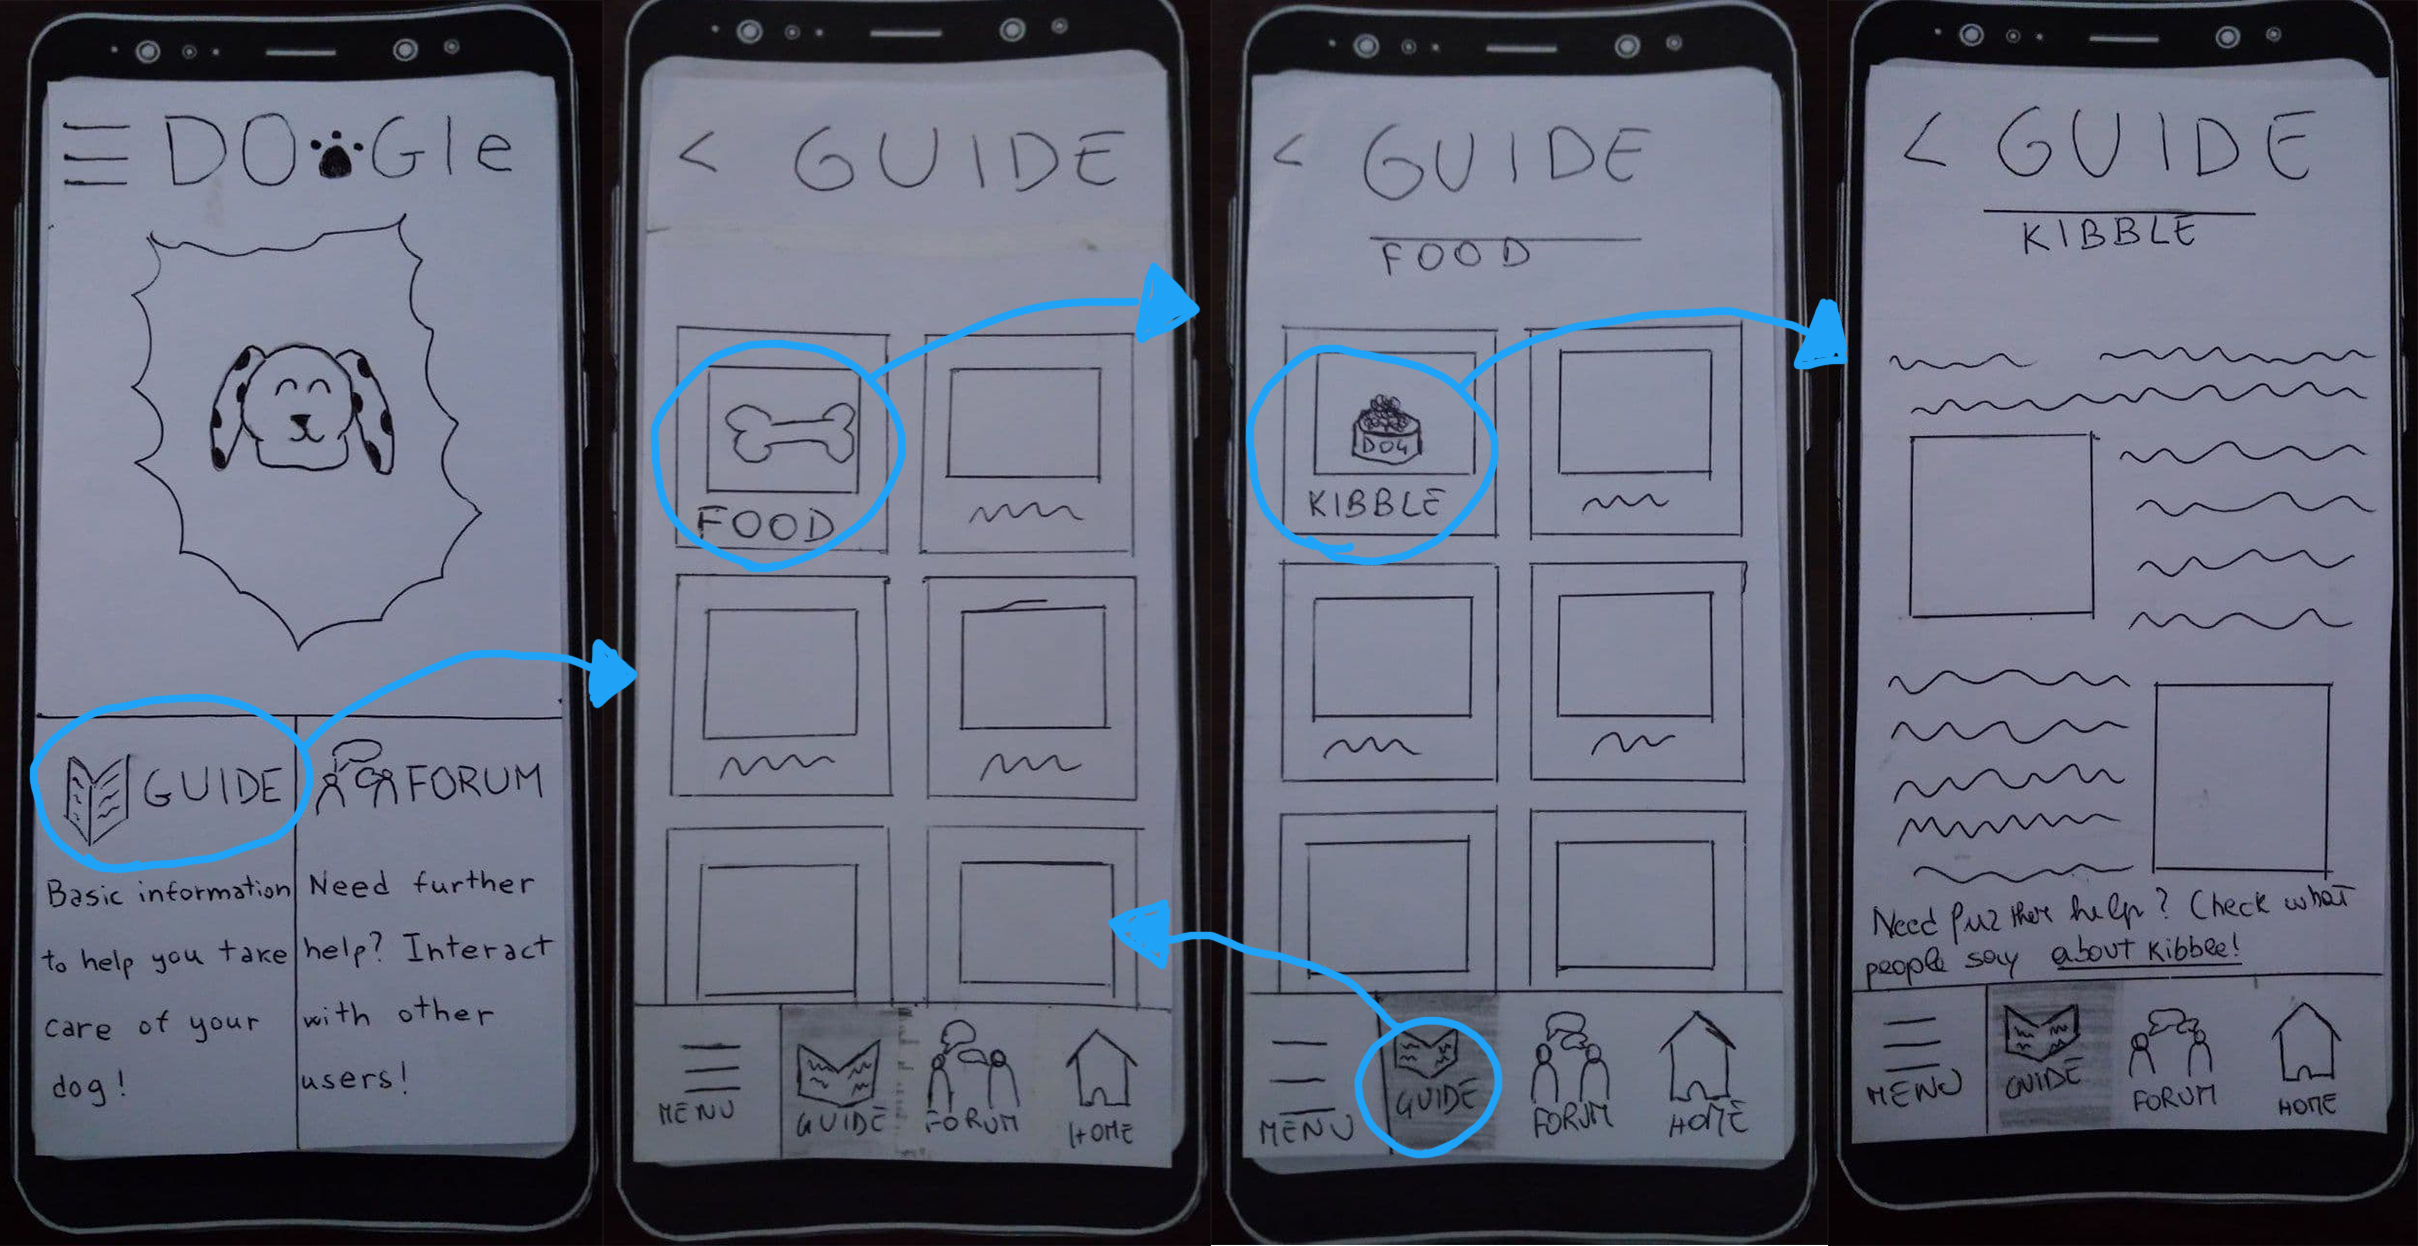 DOGle
GUIDE
FORUM
Basic information
to help you take
care of your
dog!
Need further
help? Interact
with other
users!
< GUIDE
FOOD
MENU
GUIDE
FORUM
HOME
< GUIDE
FOOD
DOG
KIBBLE
MENU
GUIDE
FORUM
HOME
< GUIDE
KIBBLE
Need further help? Check what
people say about Kibble!
MENU
GUIDE
FORUM
HOME